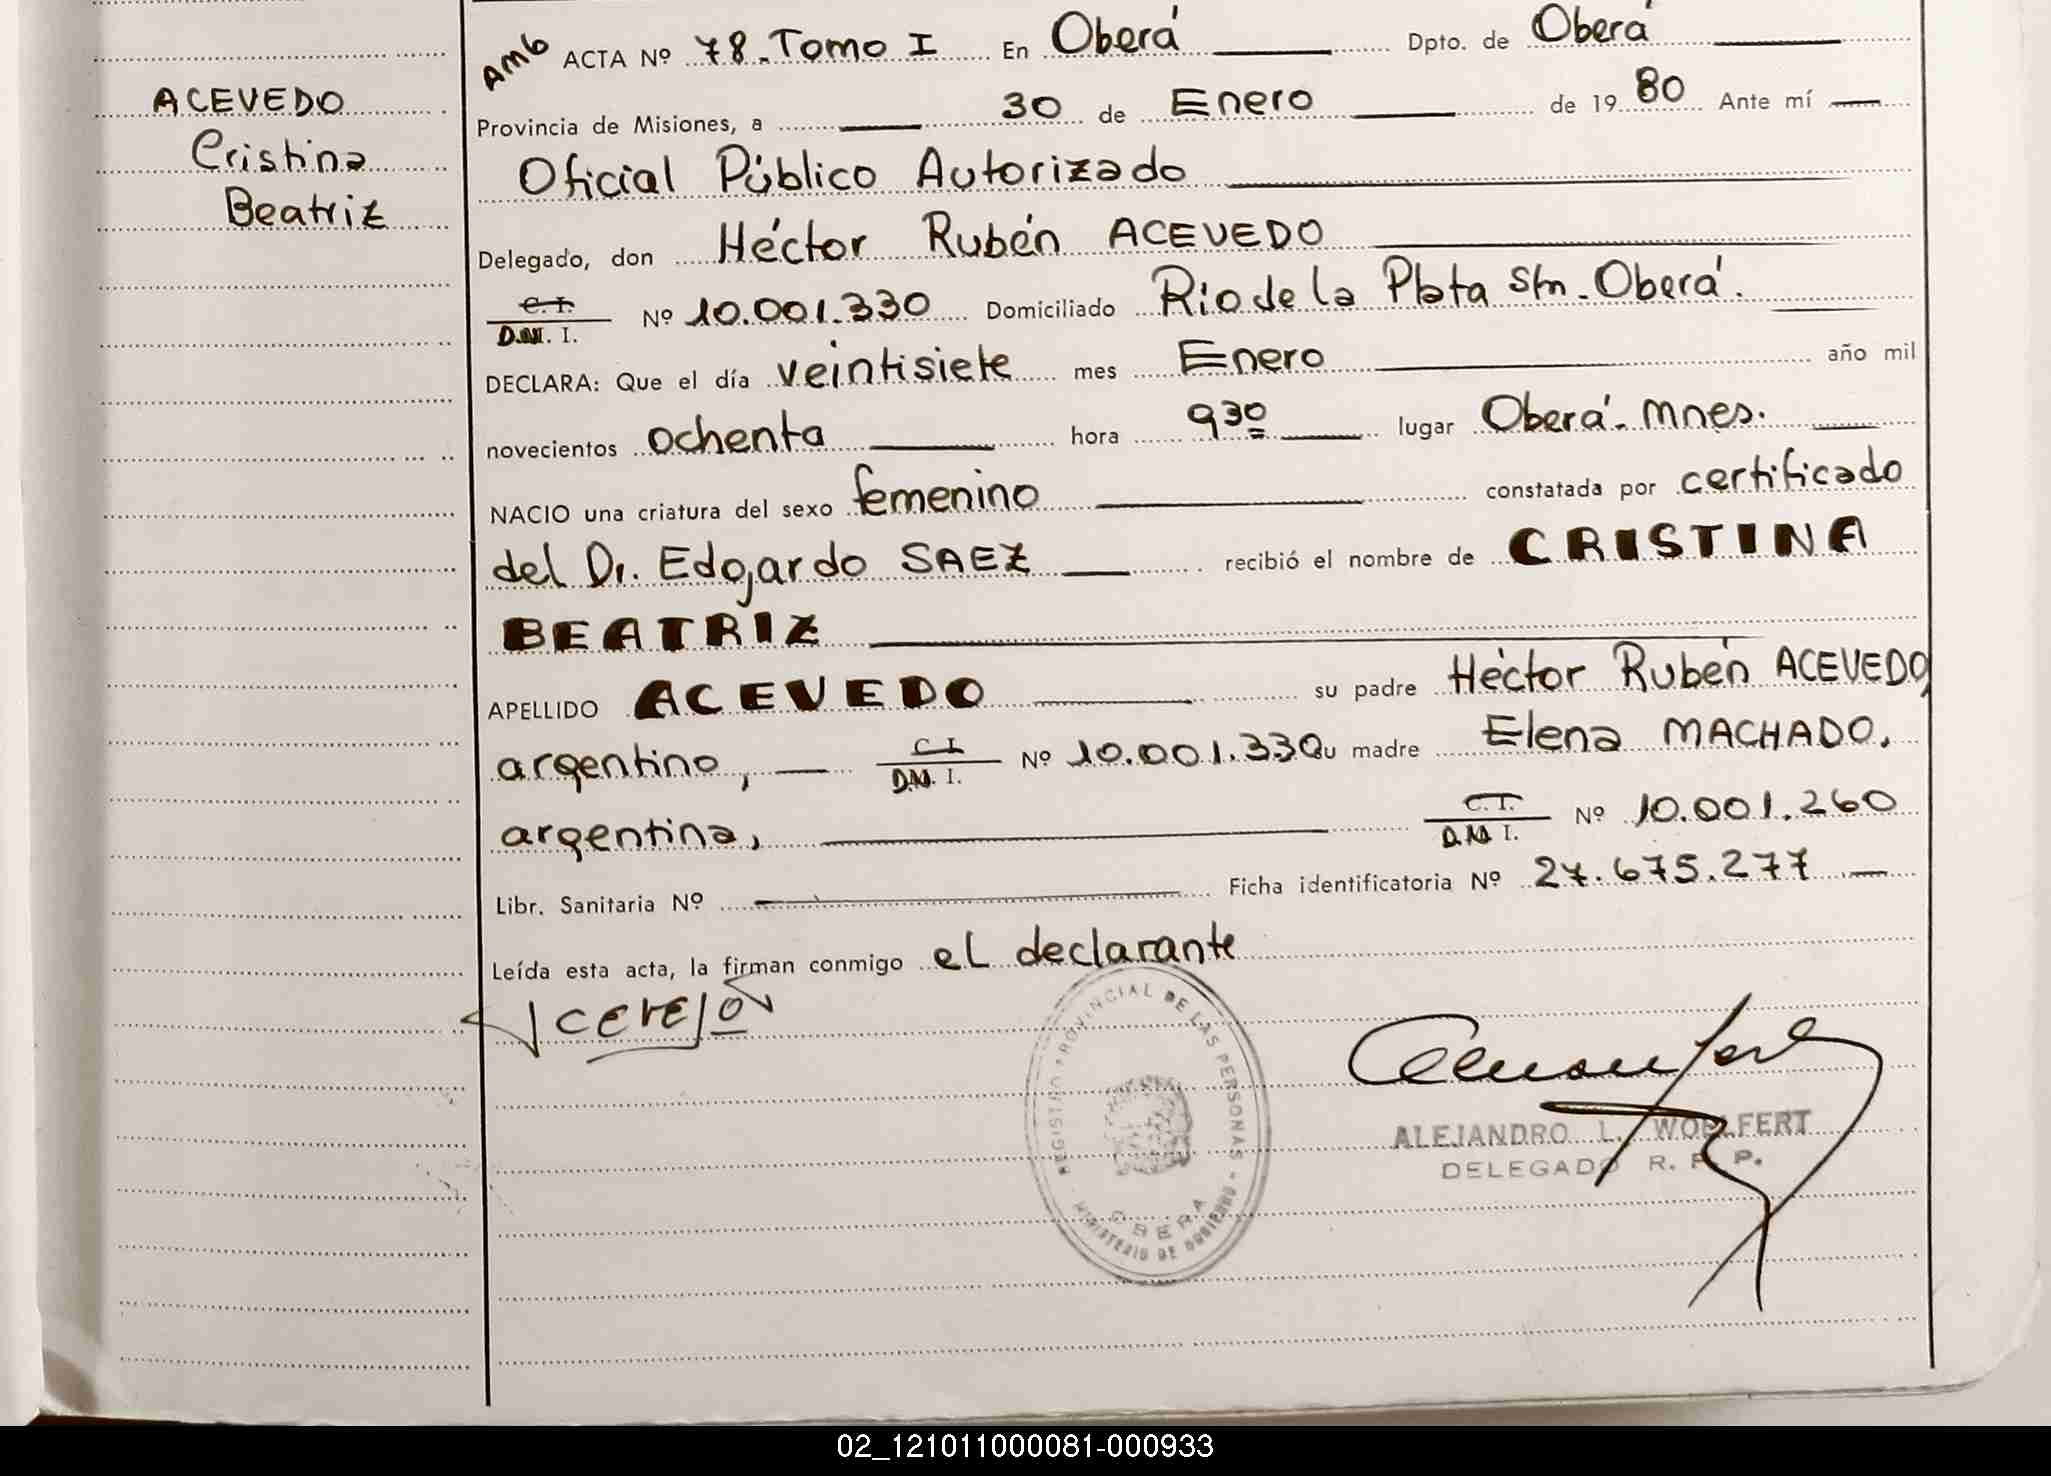 ACEVEDO
Cristina
Beatriz
Amb ACTA Nº 78. Tomo I En Oberá Dpto. de Oberá
Provincia de Misiones, a 30 de Enero de 1980 Ante mí
Oficial Público Autorizado
Delegado, don Héctor Rubén ACEVEDO
C. I.
D.N. I. Nº 10.001.330 Domiciliado Rio de la Plata s/n. Oberá.
DECLARA: Que el día veintisiete mes Enero año mil
novecientos ochenta hora 9 30 lugar Oberá. Mnes.
NACIO una criatura del sexo femenino constatada por certificado
del Dr. Edgardo SAEZ recibió el nombre de CRISTINA
BEATRIZ
APELLIDO ACEVEDO su padre Héctor Rubén ACEVEDO,
argentino, C. I. D.N. I. Nº 10.001.330 su madre Elena MACHADO.
argentina, C. I. D.N. I. Nº 10.001.260
Libr. Sanitaria Nº Ficha identificatoria Nº 27.675.277
Leída esta acta, la firman conmigo el declarante
REGISTRO PROVINCIAL DE LAS PERSONAS
OBERA
MINISTERIO DE GOBIERNO
ALEJANDRO L. WOELFERT
DELEGADO R. P. P.
02_121011000081-000933